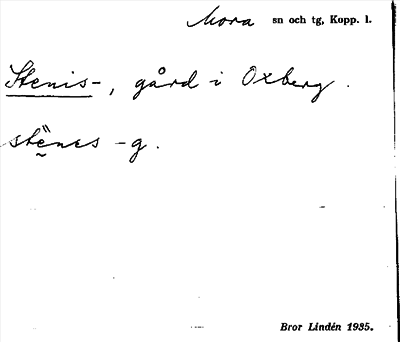 Mora sn och tg, Kopp. l.
Stenis-, gård i Oxberg.
stẹ̈nes -g.
Bror Lindén 1935.